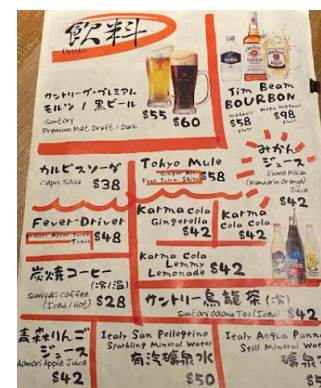 飲料
Drinks
サントリー・プレミアム
モルツ / 黒ビール
Suntory
Premium Malt Draft / Dark
$55
$60
Jim Beam
BOURBON
$58
$98
カルピスソーダ
Calpis Soda $38
Tokyo Mule
$58
みかん
ジュース
Ehime Mikan
(Mandarin Orange)
Juice
$42
Fever-Driver
Tonic
$48
Karma Cola
Gingerella
$42
Karma
Cola
$42
Karma Cola
Lemmy
Lemonade $42
炭焼コーヒー
(冷/温)
Sumiyaki Coffee
(Iced/Hot) $28
サントリー烏龍茶(冷)
Suntory Oolong Tea (Iced) $42
青森りんご
ジュース
Aomori Apple Juice
$42
Italy San Pellegrino
Sparkling Mineral Water
有汽礦泉水
$50
Italy Acqua Panna
Still Mineral Wat
礦泉